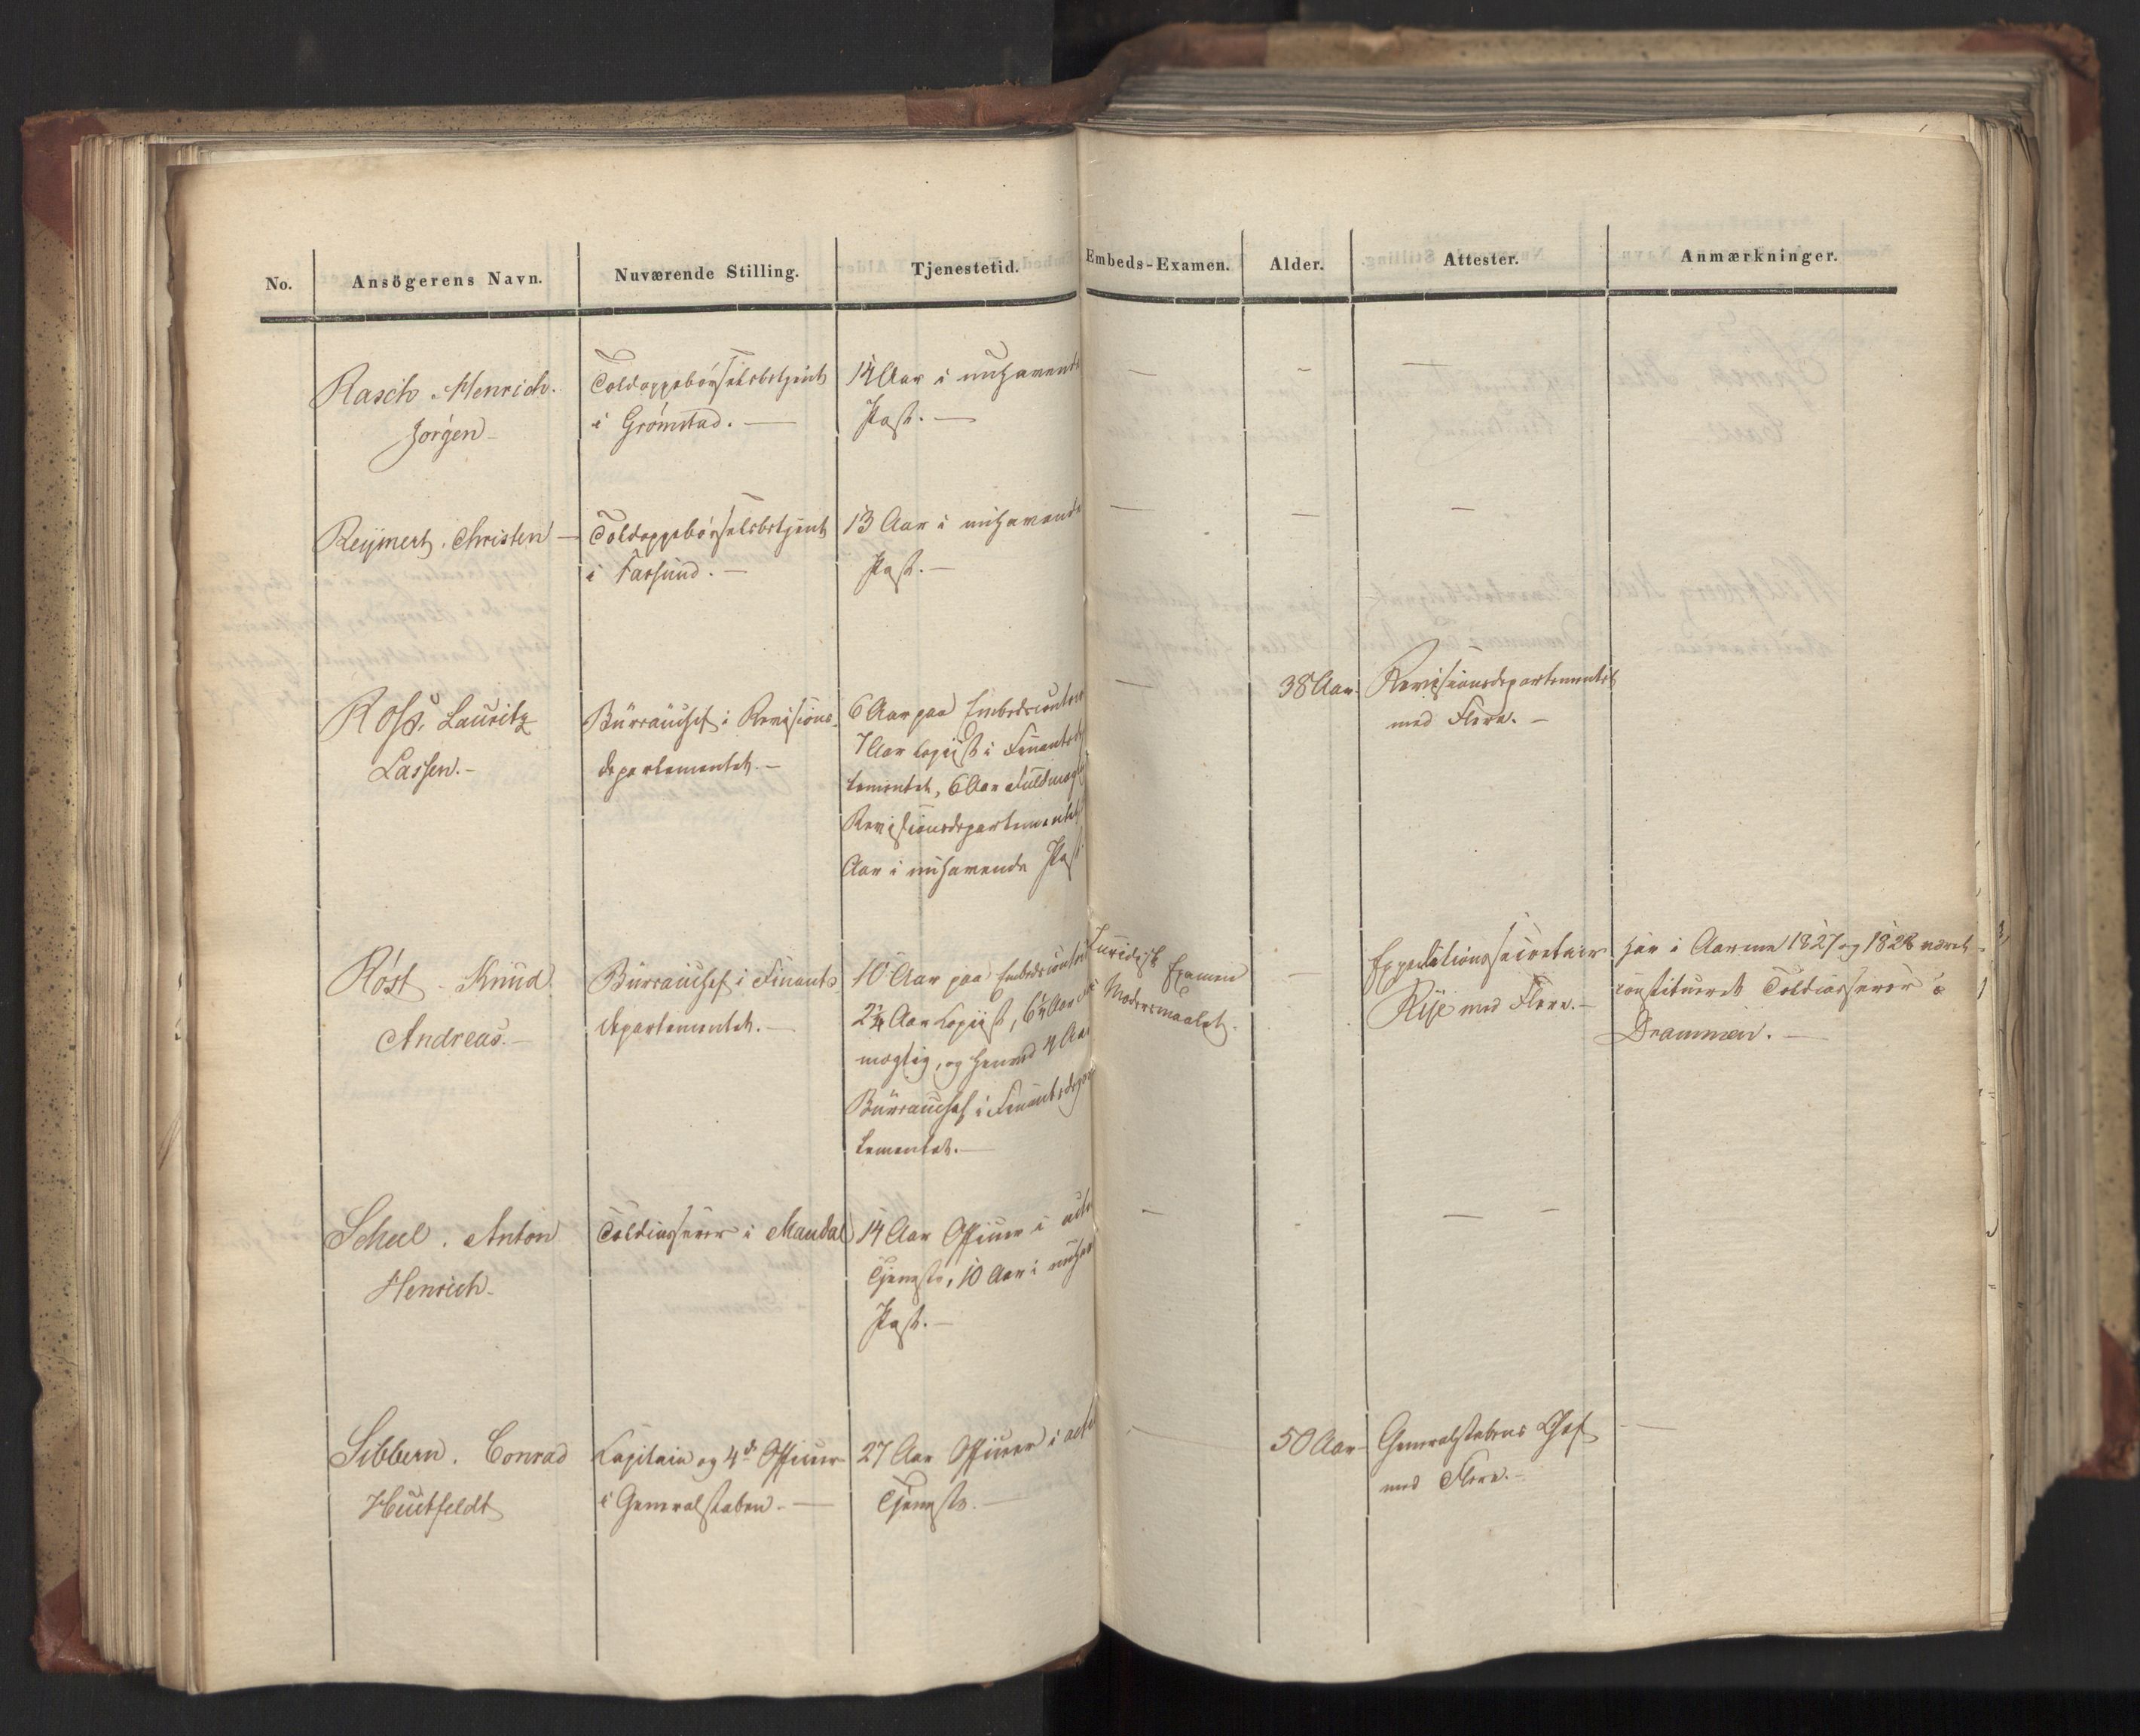 No.
Ansögerens Navn.
Nuværende Stilling.
Tjenestetid.
Embeds-Examen.
Alder.
Attester.
Anmærkninger.
Rasch. Henrich.
Jørgen –
Toldoppebørselsbetjent
i Grømstad. —
14 Aar i nuhavende
Post. —
—
–
—
Reymert. Christen —
Toldoppebørselsbetjent
i Farsund. —
13 Aar i nuhavende
Post. —
—
—
—
Ross. Lauritz
Lassen. –
Bürrauchef i Revisions-
departementet. –
6 Aar paa Embedscontoir
7 Aar Copiist i Finantsde
tementet, 6 Aar Fuldmægt
Revisionsdepartementet
Aar i nuhavende Post
—
38 Aar.
Revisionsdepartementet
med Flere. –
Röst. Knud
Andreas. –
Bürrauchef i Finants-
departementet. –
10 Aar paa Embedscontoir
2¼ Aar Copiist, 6¼ Aar
mægtig, og henved 4 Aar
Bürrauchef i Finantsdepar
tementet. —
Juridisk Examen
Modersmaalet. –
–
Expeditionssecretair
Rÿe med Flere. –
har i Aarene 1827 og 1828 været
constitueret Toldinspecteur i
Drammen. —
Scheel. Anton
Henrich. –
Toldinspecteur i Mandal
14 Aar Officier i activ
Tjeneste, 10 Aar i nuhav
Post. –
–
–
—
–
Sibbern. Conrad
Huitfeldt
Capitain og 4de Officier
i Generalstaben. —
27 Aar Officier i acti
Tjeneste. —
–
50 Aar
Generalstabens Chef
med Flere. –
—